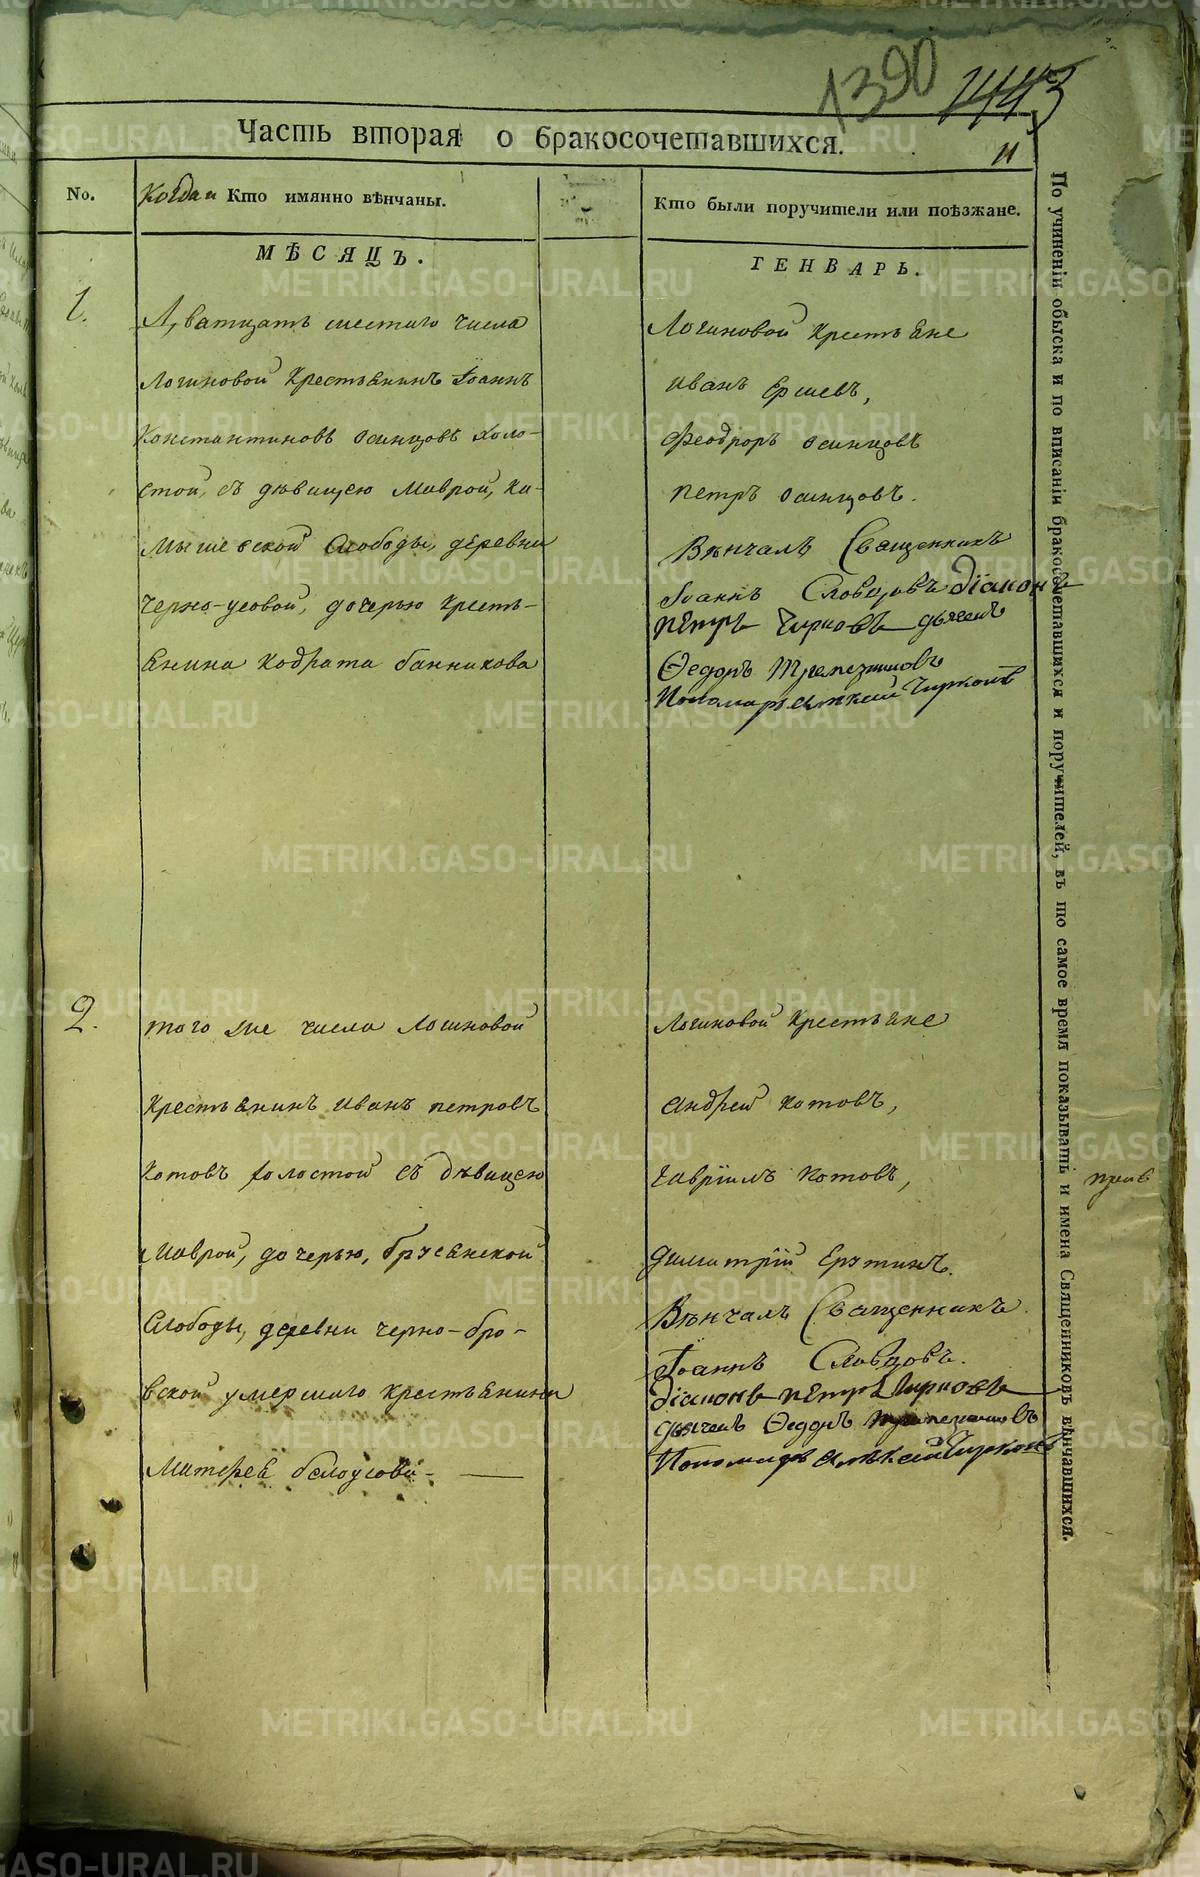 1390 1443
Часть вторая о бракосочетавшихся.
11
No. Когда и Кто имянно вѣнчаны. Кто были поручители или поѣзжане.
МѢСЯЦЪ. ГЕНВАРЬ.
1.
Дватцать шестаго числа
Логиновой крестьянинъ Іоаннъ
Константиновъ осинцовъ холо-
стой, съ дѣвицею Маврой, Ка-
мышевской Слободы, деревни
Черно-усовой, дочерью кресть-
янина Кодрата банникова
Логиновой крестьяне
иванъ Ершевъ,
Феодоръ осинцовъ
петръ осинцовъ.
Вѣнчалъ Священникъ
Іоаннъ Словцовъ діаконъ
пЕтръ Чирковъ дьячекъ
Ѳедоръ
Пономарь алѣксей Чирковъ
2.
того же числа Логиновой
крестьянинъ иванъ петровъ
котовъ холостой съ дѣвицею
Маврой, дочерью, брусянской
Слободы, деревни черно-бро-
вской умершаго крестьянина
Матфея белоусова-
Логиновой крестьяне
андрей котовъ,
гавріилъ котовъ,
димитрій
Вѣнчалъ Священникъ.
Іоаннъ Словцовъ.
діаконъ пЕтръ Чирковъ
дьячекъ Ѳедоръ
Пономарь алѣксей Чирковъ
По учиненіи обыска и по вписаніи бракосочетавшихся и поручителей, въ то самое время показывать и имена Священниковъ вѣнчавшихся.
METRIKI.GASO-URAL.RU